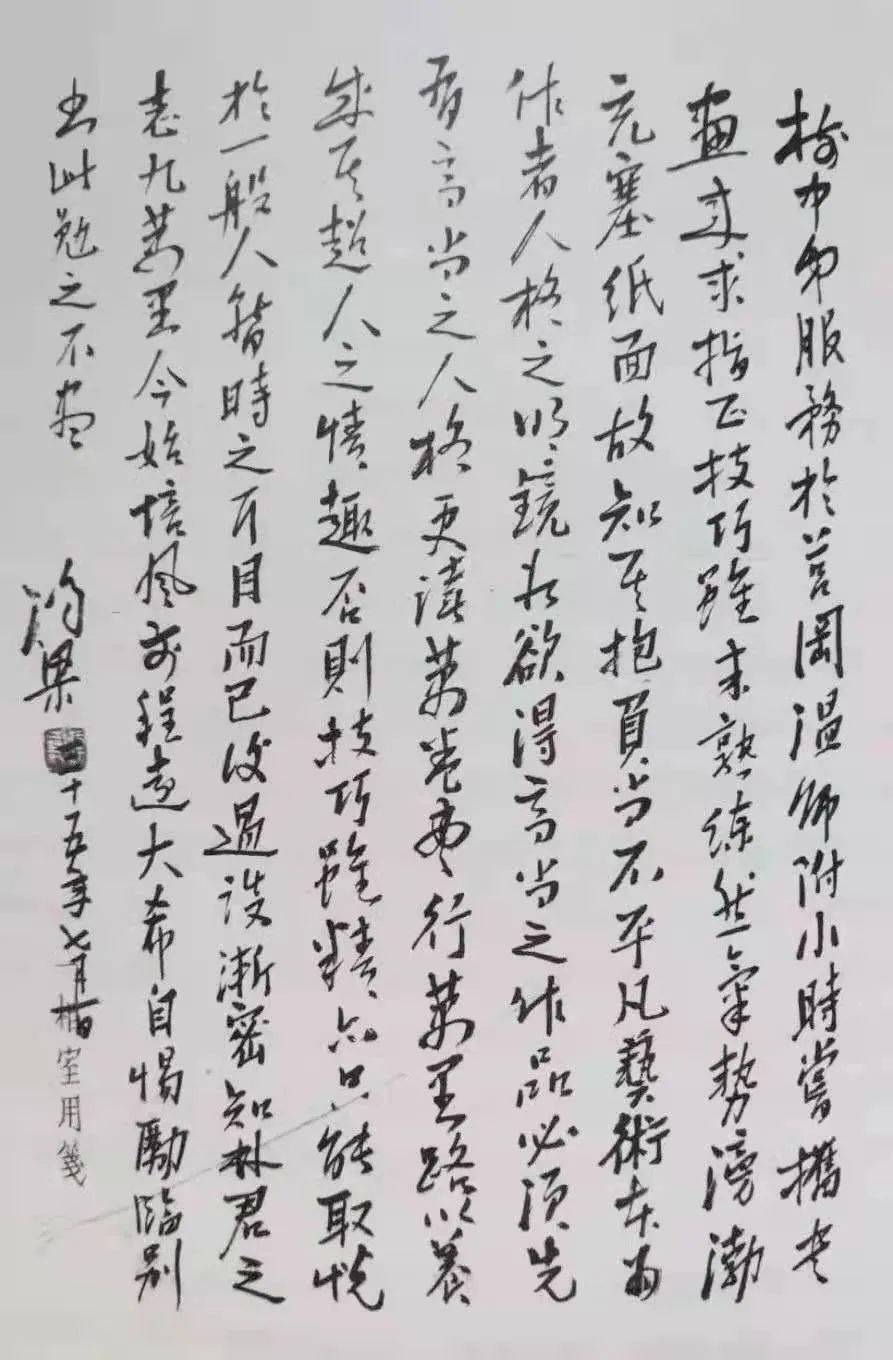 梅中弟服務於莒岡溫師附小時嘗攜其
畫來求指正技巧雖未熟練然氣勢滂渤
充塞紙面故知其抱負當不平凡藝術本為
作者人格之明鏡故欲得高尚之作品必須先
有高尚之人格更讀萬卷書行萬里路以養
成其超人之情趣否則技巧雖精亦只能取悅
於一般人暫時之耳目而已後過從漸密知林君之
志九萬里今始培風前程遠大希自惕勵臨別
書此勉之不盡
三十五年七月
室用箋